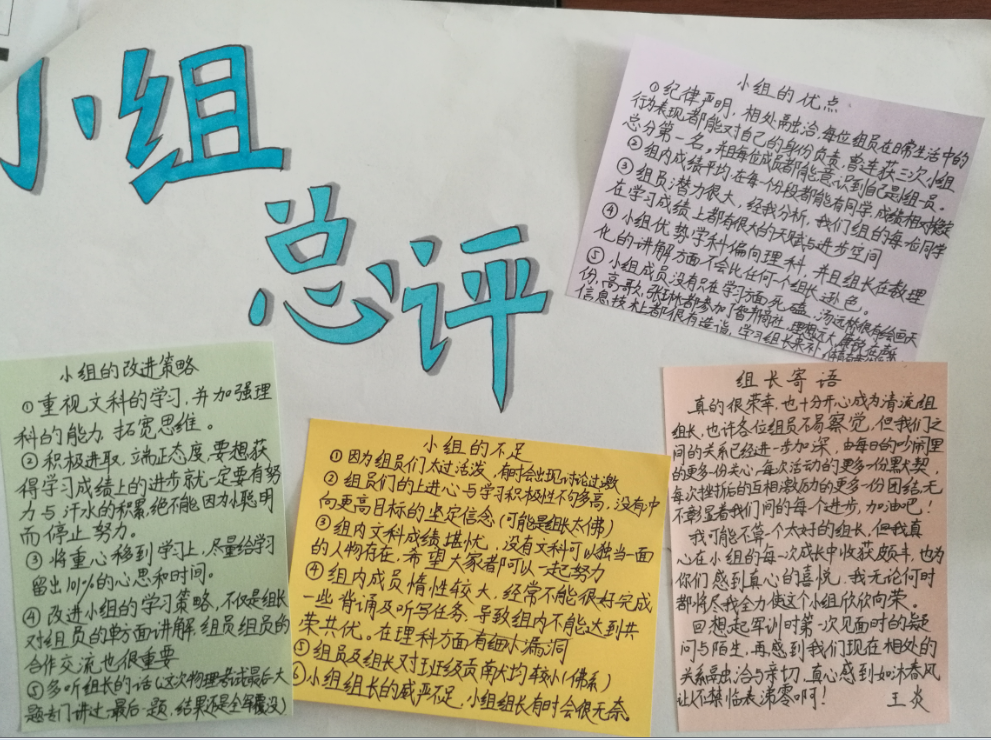 小组
总评
小组的优点
①纪律严明，相处融洽，每位组员在日常生活中的
行为表现都能对自己的身份负责，曾连获三次小组
总分第一名，并且每位成员都能意识到自己是小组一员。
②组内成绩平均，在每个分段都能有同学，成绩相对稳定
③组员潜力很大，经我分析，我们组的每一位同学
在学习成绩上都有很大的天赋与进步空间
④小组优势学科偏向理科，并且组长在数理
化的讲解方面不会比任何一个组长逊色。
⑤小组成员没有只在学习方面死磕，汤远林很有绘画天
份，高歌、张琳都参加了
信息技术上都很有造诣，学习组长
小组的改进策略
①重视文科的学习，并加强理
科的能力，拓宽思维。
②积极进取，端正态度，要想获
得学习成绩上的进步就一定要有努
力与汗水的积累，绝不能因为小聪明
而停止努力。
③将重心移到学习上，尽量给学习
留出101%的心思和时间。
④改进小组的学习策略，不仅是组长
对组员的单方面讲解，组员组员的
合作交流也很重要
⑤多听组长的话（这次物理考试最后大
题专门讲过，最后一题，结果还是全军覆没）
小组的不足
①因为组员们太过活泼，有时会出现讨论过激
②组员们的上进心与学习积极性不句多高，没有冲
向更高目标的坚定信念（可能是组长太佛）
③组内文科成绩堪忧，没有文科可以独当一面
的人物存在，希望大家都可以一起努力
④组内成员惰性较大，经常不能很好完成
一些背诵及听写任务，导致组内不能达到共
荣共优。在理科方面有细小漏洞
⑤组员及组长对班级贡献大均较小（佛系）
⑥小组组长的威严不足，小组组长有时会很无奈
组长寄语
真的很荣幸，也十分开心成为清流组
组长，也许各位组员不易察觉，但我们之
间的关系已经进一步加深，由每日的吵闹里
的更多一份关心，每次活动的更多一份默契，
每次挫折后的互相激励的更多一份团结，无
不彰显着我们间的每一个进步，加油吧！
我可能不算一个太好的组长，但我真
心在小组的每一次成长中收获颇丰，也为
你们感到真心的喜悦，我无论何时
都将尽我全力使这个小组欣欣向荣。
回想起军训时第一次见面时的疑
问与陌生，再感到我们现在相处的
关系融洽与亲切，真心感到如沐春风
让人不禁临表涕零啊！
王炎